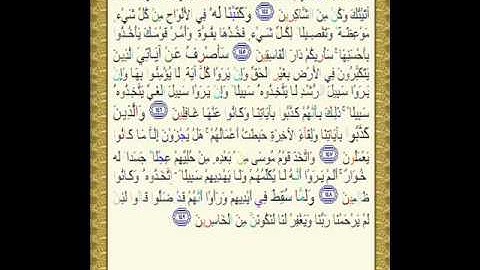 آتَيْتُكَ وَكُن مِّنَ الشَّاكِرِينَ ﴿١٤٤﴾ وَكَتَبْنَا لَهُ فِي الْأَلْوَاحِ مِن كُلِّ شَيْءٍ
مَّوْعِظَةً وَتَفْصِيلًا لِّكُلِّ شَيْءٍ فَخُذْهَا بِقُوَّةٍ وَأْمُرْ قَوْمَكَ يَأْخُذُوا
بِأَحْسَنِهَا ۚ سَأُرِيكُمْ دَارَ الْفَاسِقِينَ ﴿١٤٥﴾ سَأَصْرِفُ عَنْ آيَاتِيَ الَّذِينَ
يَتَكَبَّرُونَ فِي الْأَرْضِ بِغَيْرِ الْحَقِّ وَإِن يَرَوْا كُلَّ آيَةٍ لَّا يُؤْمِنُوا بِهَا وَإِن
يَرَوْا سَبِيلَ الرُّشْدِ لَا يَتَّخِذُوهُ سَبِيلًا وَإِن يَرَوْا سَبِيلَ الْغَيِّ يَتَّخِذُوهُ
سَبِيلًا ۚ ذَٰلِكَ بِأَنَّهُمْ كَذَّبُوا بِآيَاتِنَا وَكَانُوا عَنْهَا غَافِلِينَ ﴿١٤٦﴾ وَالَّذِينَ
كَذَّبُوا بِآيَاتِنَا وَلِقَاءِ الْآخِرَةِ حَبِطَتْ أَعْمَالُهُمْ ۚ هَلْ يُجْزَوْنَ إِلَّا مَا كَانُوا
يَعْمَلُونَ ﴿١٤٧﴾ وَاتَّخَذَ قَوْمُ مُوسَىٰ مِن بَعْدِهِ مِنْ حُلِيِّهِمْ عِجْلًا جَسَدًا لَّهُ
خُوَارٌ ۚ أَلَمْ يَرَوْا أَنَّهُ لَا يُكَلِّمُهُمْ وَلَا يَهْدِيهِمْ سَبِيلًا ۘ اتَّخَذُوهُ وَكَانُوا
ظَالِمِينَ ﴿١٤٨﴾ وَلَمَّا سُقِطَ فِي أَيْدِيهِمْ وَرَأَوْا أَنَّهُمْ قَدْ ضَلُّوا قَالُوا لَئِن
لَّمْ يَرْحَمْنَا رَبُّنَا وَيَغْفِرْ لَنَا لَنَكُونَنَّ مِنَ الْخَاسِرِينَ ﴿١٤٩﴾